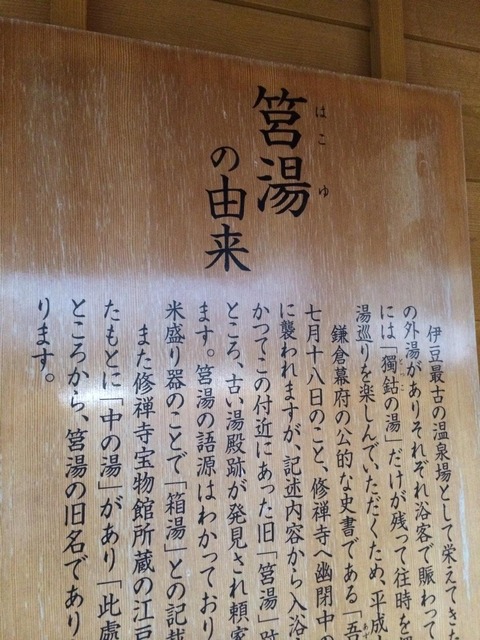 筥湯
はこゆ
の由来
伊豆最古の温泉場として栄えてき
の外湯がありそれぞれ浴客で賑わって
には「獨鈷の湯」だけが残って往時を
とっこ
湯巡りを楽しんでいただくため、平成
鎌倉幕府の公的な史書である「吾
七月十八日のこと、修禅寺へ幽閉中の
に襲われますが、記述内容から入浴
かつてこの付近にあった旧「筥湯」跡
ところ、古い湯殿跡が発見され頼家
ます。筥湯の語源はわかっており
米盛り器のことで「箱湯」との記載
また修禅寺宝物館所蔵の江戸
たもとに「中の湯」があり「此處
ところから、筥湯の旧名であり
ります。